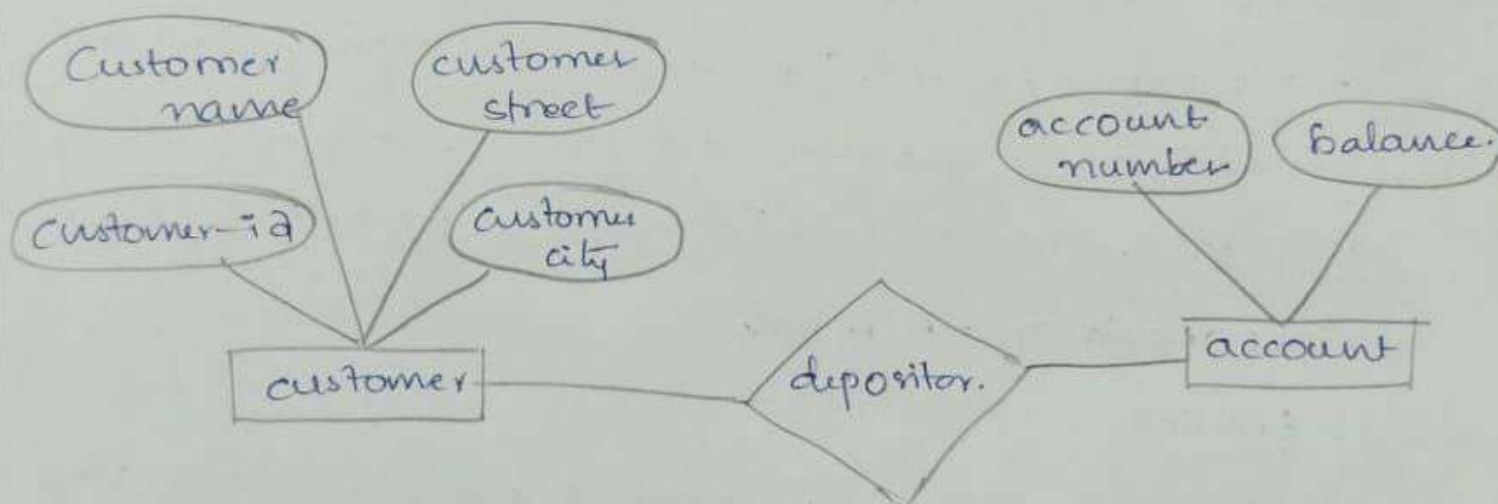 Customer
name
customer
street
customer-id
customer
city
account
number
balance.
customer
depositor.
account